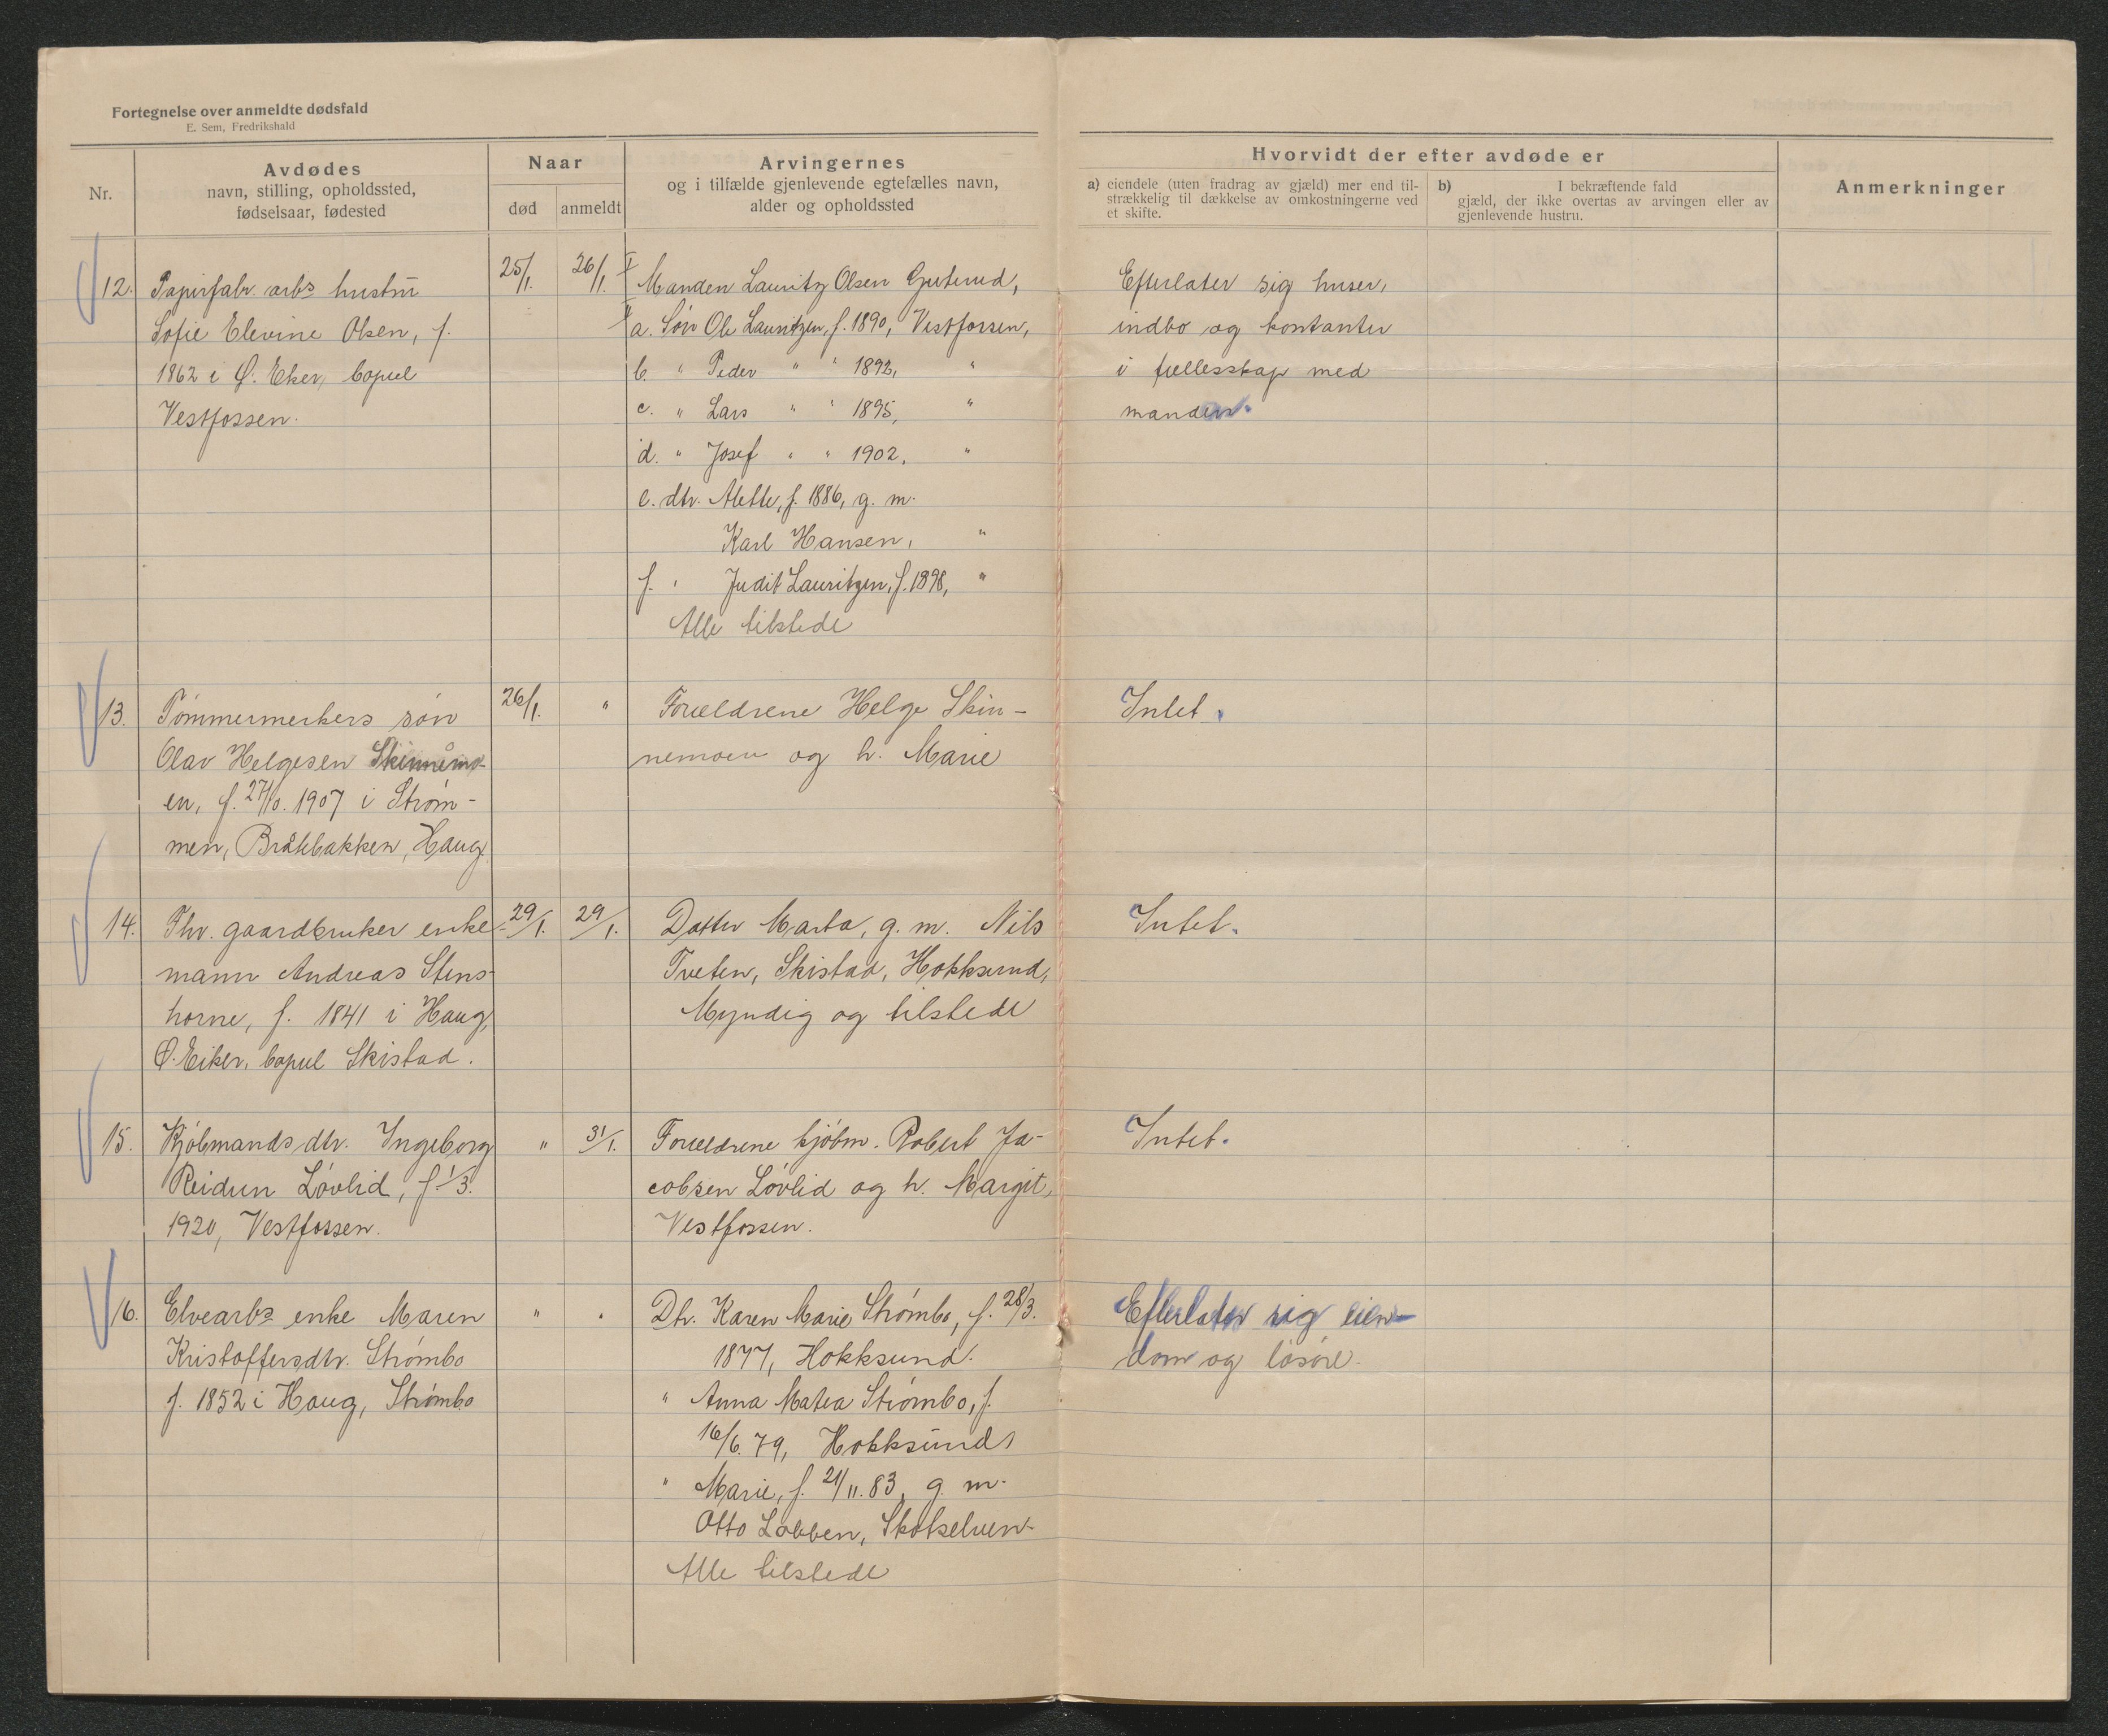 Fortegnelse over anmeldte dødsfald
E. Sem, Fredrikshald
Nr.
Avdødes
navn, stilling, opholdssted,
fødselsaar, fødested
Naar
død
anmeldt
Arvingernes
og i tilfælde gjenlevende egtefælles navn,
alder og opholdssted
Hvorvidt der efter avdøde er
a) eiendele (uten fradrag av gjæld) mer end til-
strækkelig til dækkelse av omkostningerne ved
et skifte.
b) I bekræftende fald
gjæld, der ikke overtas av arvingen eller av
gjenlevende hustru.
Anmerkninger
12. Papirfabr. arbs hustru
Sofie Elevine Olsen, f.
1862 i Ø. Eker, bopæl
Vestfossen.
25/1. 26/1.
I Manden Lauritz Olsen Guterud,
II a. Søn Ole Lauritzen, f. 1890, Vestfossen,
b. " Peder " " 1892, "
c. " Lars " " 1895, "
d. " Josef " " 1902, "
e. dtr. Alette, f. 1886, g. m.
Karl Hansen, "
f. " Judit Lauritzen, f. 1898, "
Alle tilstede
Efterlater sig huser,
indbo og kontanter
i fællesskap med
manden.
13. Tømmermerkers søn
Olav Helgesen Skinnemo-
en, f. 27/10. 1907 i Strøm-
men, Bråtebakken, Haug.
26/1. "
Forældrene Helge Skin-
nemoen og h. Marie
Intet.
14. Fhv. gaardbruker enke-
mann Andreas Stens-
horne, f. 1841 i Haug,
Ø. Eiker, bopæl Skistad.
29/1. 29/1.
Datter Marta, g. m. Nils
Tveten, Skistad, Hokksund,
Myndig og tilstede
Intet.
15. Kjøbmands dtr. Ingeborg
Reidun Løvlid, f. 1/3.
1920, Vestfossen.
" 31/1.
Forældrene kjøbm. Robert Ja-
cobsen Løvlid og h. Margit,
Vestfossen.
Intet.
16. Elvearbs enke Maren
Kristoffersdtr. Strømbo
f. 1852 i Haug, Strømbo
" "
Dtr. Karen Marie Strømbo, f. 28/3.
1877, Hokksund.
" Anna Matea Strømbo, f.
16/6. 79, Hokksund,
" Marie, f. 21/11. 83, g. m.
Otto Lobben, Skotselven.
Alle tilstede
Efterlater sig eien-
dom og løsøre.